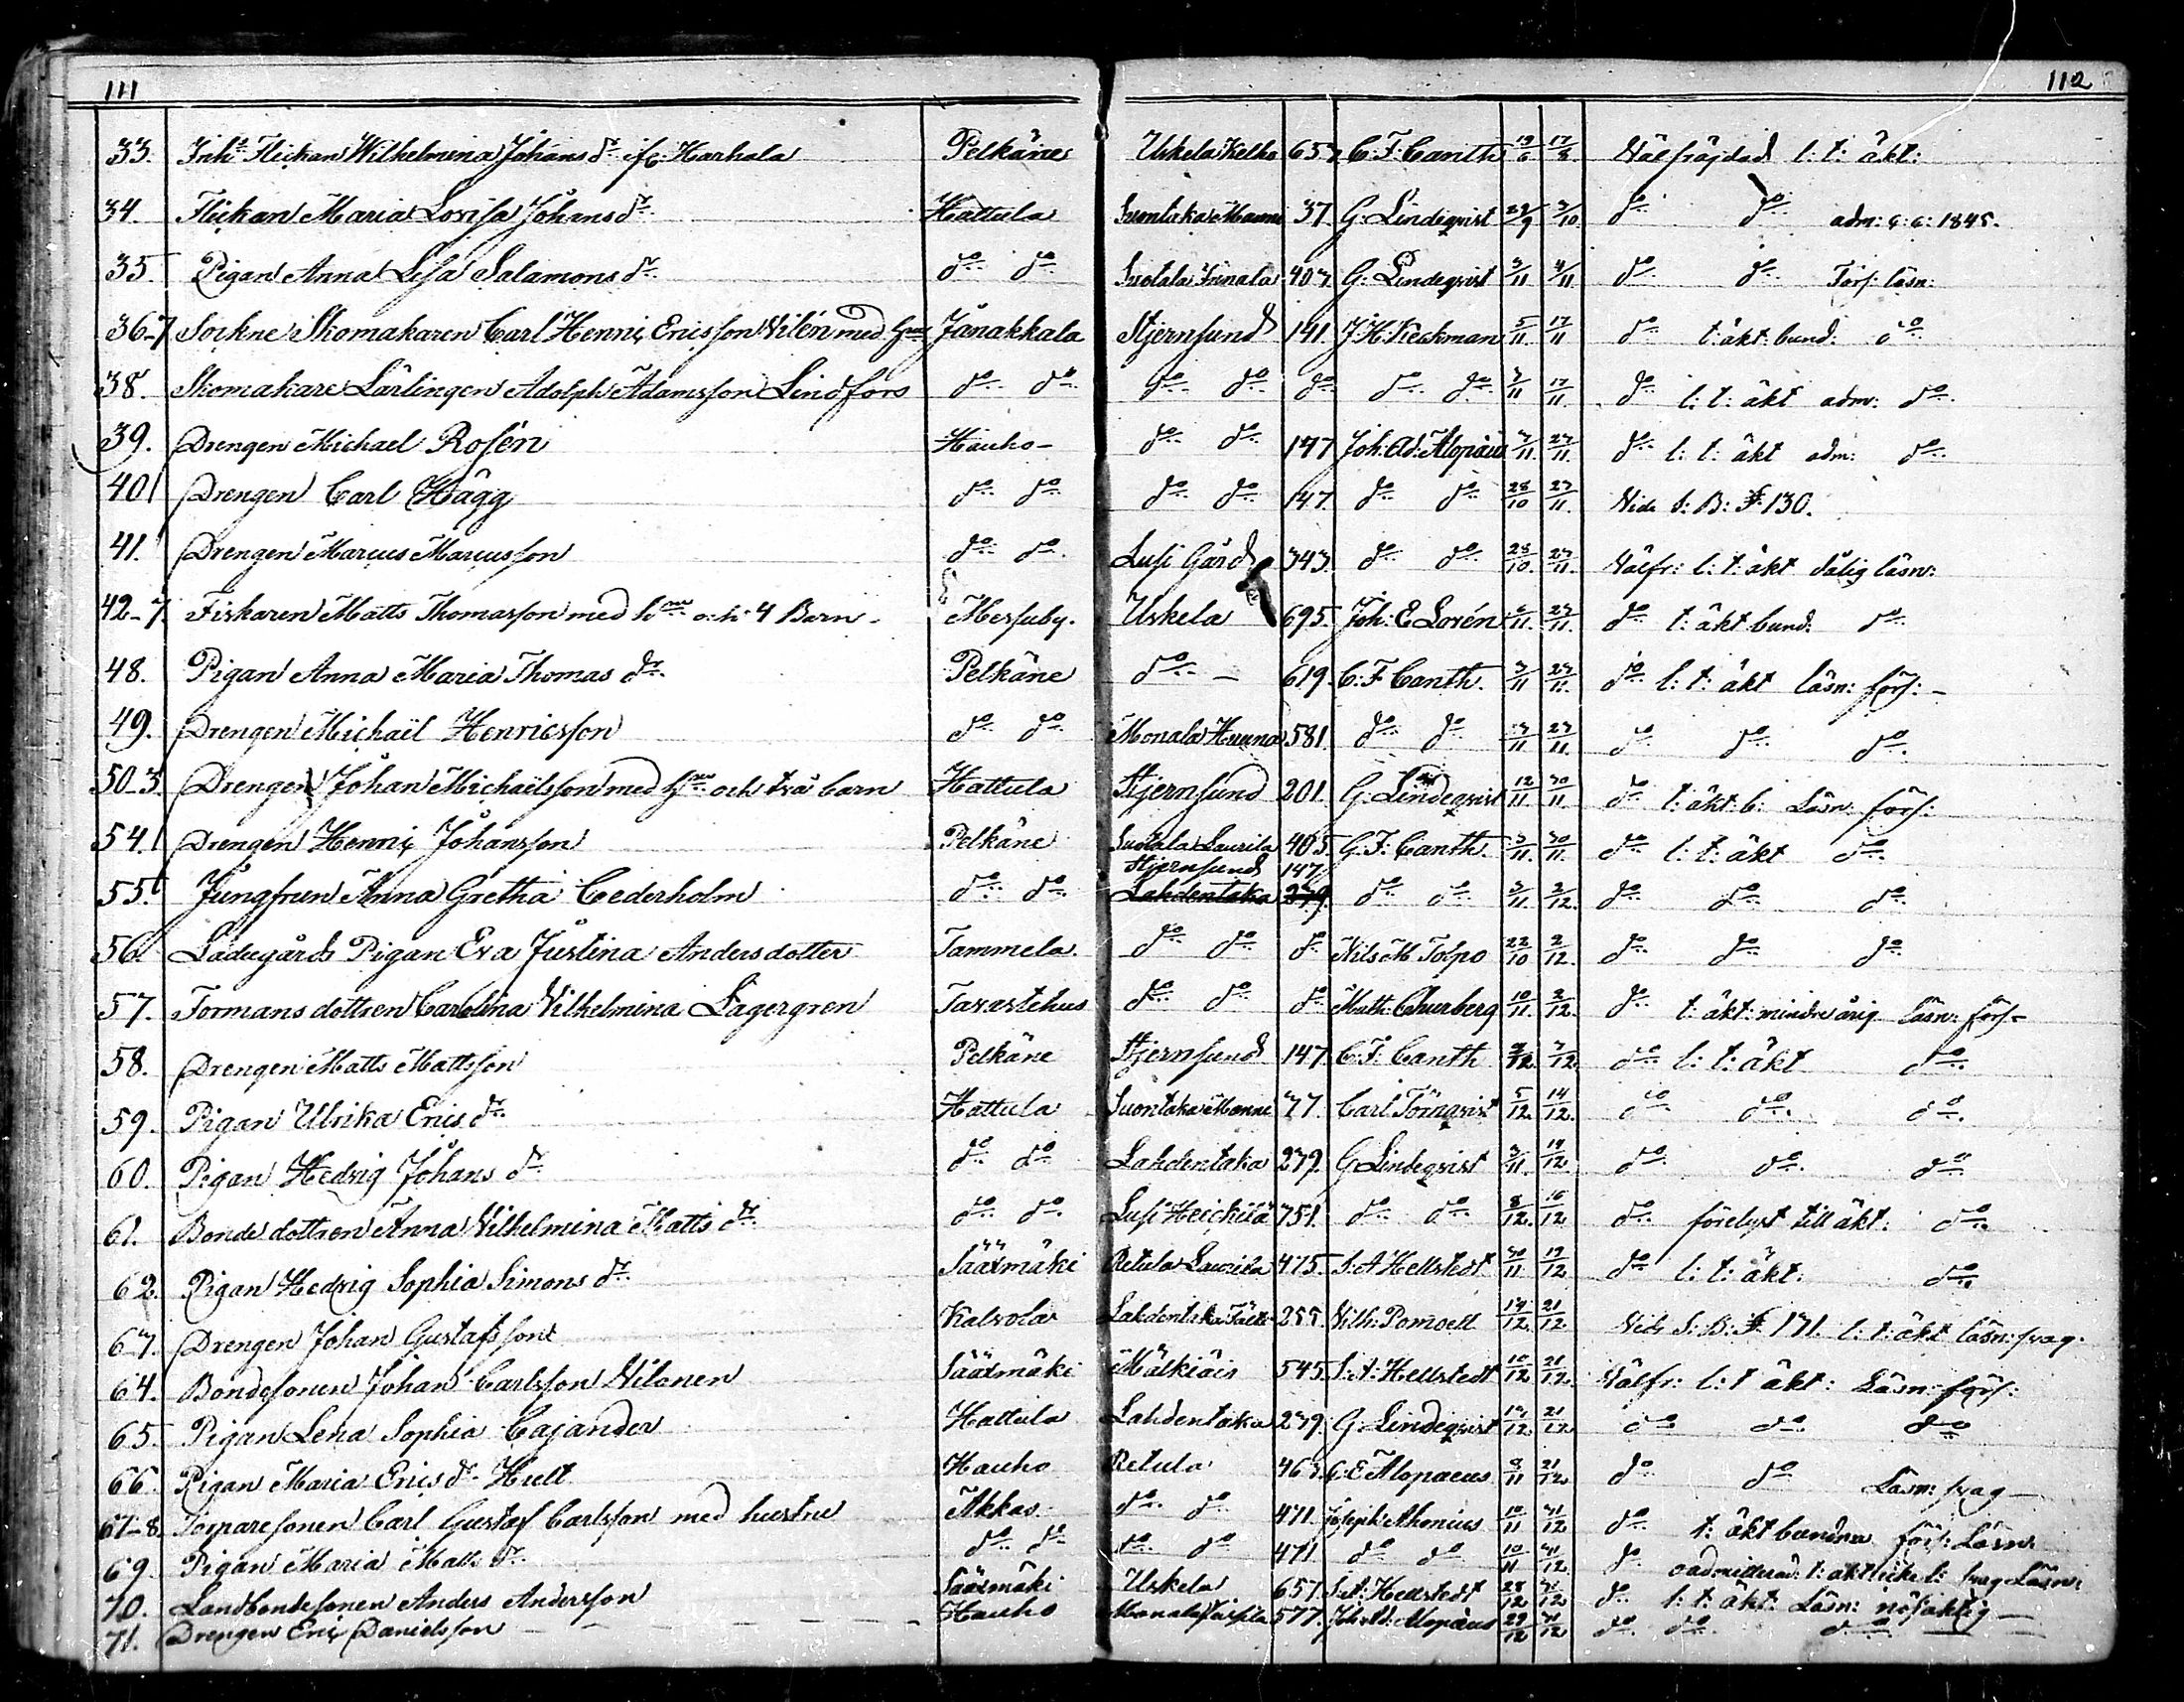 111
112
33. Inh: Flickan Wilhelmina Johans dr. ifr. Harhala Pelkäne Uskela Kelho 653 C: F: Canth 19/6 17/8 Välfräjdad l: t: äkt:
34. Flickan Maria Lovisa Johans dr. Hattula Suontaka Manni 37. G: Lindeqvist 29/9 3/10 do do adm: s: å: 1845.
35. Pigan Anna Lisa Salamons dr. do do Suotala Innala 403 G: Lindeqvist 3/11 4/11 do do Förs: läsn:
36-7 Sockne Skomakaren Carl Henric Ericsson Vilén med Hru Janakkala Stjernsund 141. J: H: Keckman 5/11 17/11 do t: äkt: bund: do
38. Skomakare Lärlingen Adolph Adamsson Lindfors do do do do do do do 3/11 17/11. do l: t: äkt adm: do
39. Drengen Michael Rosén Hauho do do 147 Joh: Ad: Alopæus 3/11. 27/11. do l: t: äkt adm: do
40. Drengen Carl Hägg do do do do 147. do do 28/10 27/11. Vide S: B: F: 130.
41. Drengen Marcus Marcusson do do. Lusi Gård 343. do do 28/10. 27/11. Välfr: l: t: äkt dålig läsn:
42-7. Fiskaren Matts Thomasson med hru och 4 Barn Messuby. Uskela 695. Joh: E Lorén 6/11. 27/11. do t: äkt bund: do
48. Pigan Anna Maria Thomas dr. Pelkäne do 619. C: F Canth. 3/11 27/11. do l: t: äkt läsn: förs:
49. Drengen Michaël Henricsson do do Monala Hunna 581. do do 3/11 27/11. do do do
50-3. Drengen Johan Michaëlsson med Hru och två barn Hattula Stjernsund 201. G: Lindeqvist 12/11. 30/11. do t: äkt: b: Läsn: förs:
54. Drengen Henric Johansson Pelkäne Suotala Laurila 405. C: F: Canth. 3/11. 30/11. do l: t: äkt do
Stjernsund 147.
55. Jungfrun Anna Gretha Cederholm do do Lahdentaka 279. do do 3/11. 2/12. do do do
56. Ladugårds Pigan Eva Justina Andersdotter Tammela. do do do Nils M Tolpo 22/10 2/12. do do do
57. Formans dottren Carolina Vilhelmina Lagergren Tavastehus do do do Math: Churberg 10/11. 2/12. do t: äkt: minderårig läsn: förs:
58. Drengen Matts Mattsson Pelkäne Stjernsund 147 C: F: Canth 2/12. 7/12. do l: t: äkt do
59. Pigan Ulrika Erics dr. Hattula Suontaka Manne 77. Carl Törnqvist 5/12. 14/12. do do do
60. Pigan Hedvig Johans dr. do do Lahdentaka 279. G Lindeqvist 3/11. 14/12. do do do
61. Bonde dottren Anna Vilhelmina Matts dr. do do Lusi Heickilä 351. do do 8/12. 16/12 do förelyst till äkt: do
62. Pigan Hedvig Sophia Simons dr. Sääxmäki Retula Laurila 475. S: A Hellstedt 30/11 19/12 do l: t: äkt: do
63. Drengen Johan Gustafsson Kalvola Lahdentaka 255. Vilh: Pomoell 14/12. 21/12 Vide S: B: F: 171. l: t: äkt läsn: svag.
64. Bondesonen Johan Carlsson Vilanen Sääxmäki Mälkiäis 545. S: A: Hellstedt 10/12 21/12. Välfr: l: t äkt: Läsn: förs:
65. Pigan Lena Sophia Cajander Hattula Lahdentaka 279. G: Lindeqvist 14/12. 21/12 do do do
66. Pigan Maria Erics dr. Hult Hauho Retula 463. C: E Alopaeus 9/11 21/12. do do Läsn: svag
67-8. Torparesonen Carl Gustaf Carlsson med hustru Akkas do do 471. Joseph Ahonius 10/11 31/12 do t: äkt bundna förs: Läsn:
69. Pigan Maria Matts dr. do do do do 471 do do 10/11 31/12. do oadmitterad: t: äkt icke l: svag Läsn:
70. Landbondesonen Anders Andersson Sääxmäki Uskela 657. S: A: Hellstedt 28/12 31/12 do l: t: äkt: Läsn: nöjaktig
71. Drengen Eric Danielsson Hauho Monala 577. Joh: Ad: Alopæus 29/12 31/12 do do do